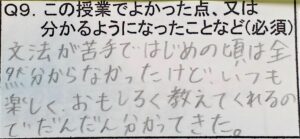 Q9. この授業でよかった点、又は
分かるようになったことなど(必須)
文法が苦手ではじめの頃は全
然分からなかったけど、いつも
楽しく、おもしろく教えてくれるの
でだんだん分かってきた。